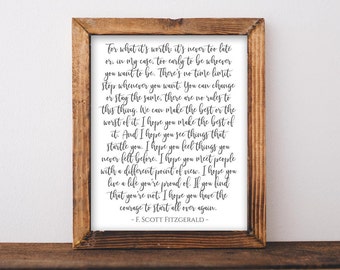 For what it's worth: it's never too late
or, in my case, too early to be whoever
you want to be. There's no time limit,
stop whenever you want. You can change
or stay the same, there are no rules to
this thing. We can make the best or the
worst of it. I hope you make the best of
it. And I hope you see things that
startle you. I hope you feel things you
never felt before. I hope you meet people
with a different point of view. I hope you
live a life you're proud of. If you find
that you're not, I hope you have the
courage to start all over again.
- F. SCOTT FITZGERALD -